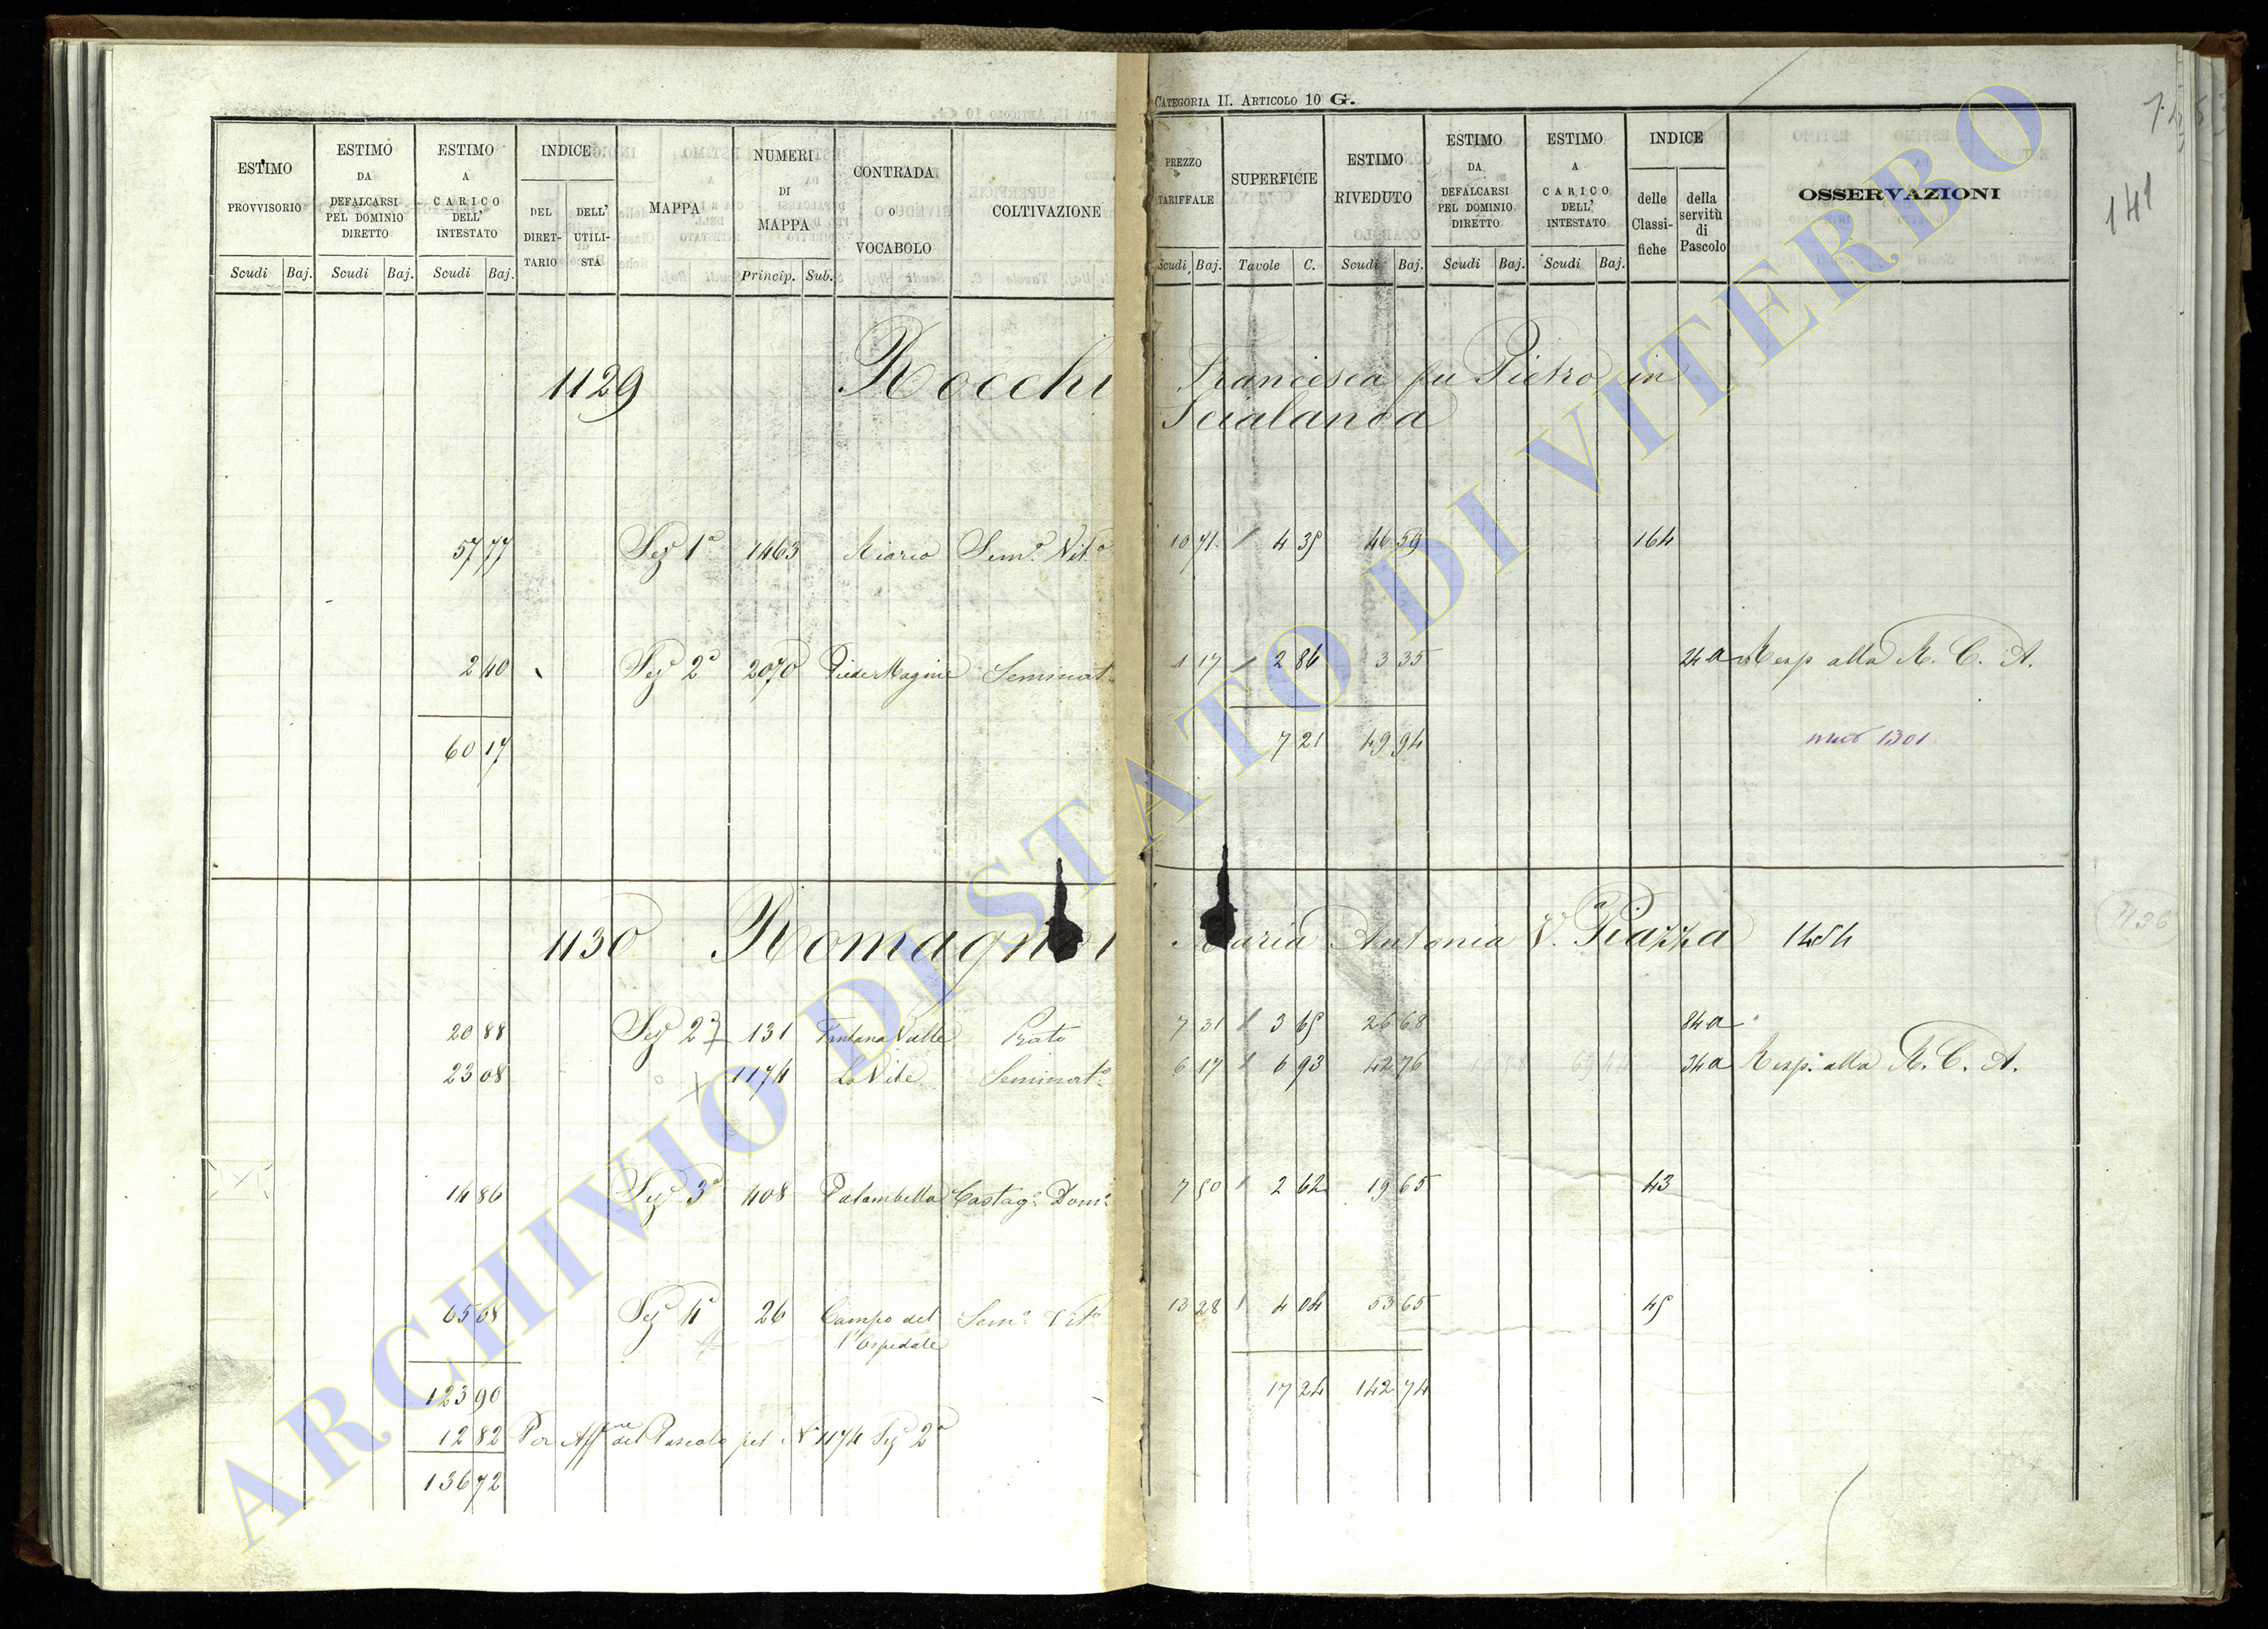 CATEGORIA II. ARTICOLO 10 G.
ESTIMO PROVVISORIO
ESTIMO DA DEFALCARSI PEL DOMINIO DIRETTO
ESTIMO A CARICO DELL' INTESTATO
INDICE
DEL DIRET-TARIO
DELL' UTILI-STA
MAPPA
NUMERI DI MAPPA
CONTRADA O VOCABOLO
COLTIVAZIONE
PREZZO TARIFFALE
SUPERFICIE
ESTIMO RIVEDUTO
ESTIMO DA DEFALCARSI PEL DOMINIO DIRETTO
ESTIMO A CARICO DELL' INTESTATO
INDICE
delle Classi-fiche
della servitù di Pascolo
OSSERVAZIONI
Scudi Baj. Scudi Baj. Scudi Baj. Princip. Sub. Scudi Baj. Tavole C. Scudi Baj. Scudi Baj. Scudi Baj.
141
1129 Rocchi Francesca fu Pietro in
Scialanca
57 77 Sez 1a 1463 Riario Semo Vito 10 71 4 35 46 59 164
2 40 Sez 2a 2070 Piedi Magine Seminato 1 17 2 86 3 35 24 a Resp alla R. C. A.
60 17 7 21 49 94 1301
1130 Romagnoli Maria Antonia V. Piazza 1454
20 88 Sez 2a 131 Fontana Valle Prato 7 31 3 65 26 68 84 a
23 08 1174 Le Vite Seminato 6 17 6 93 42 76 34 a Resp. alla R. C. A.
14 86 Sez 3a 408 Palombella Castago Domo 7 50 2 62 19 65 43
65 08 Sez 4a 26 Campo del Semo Vito 13 28 4 04 53 65 45
l'Ospedale
123 90 17 24 142 74
12 82 Per Affne del Pascolo pel No 1174 Sez 2a
136 72
ARCHIVIO DI STATO DI VITERBO